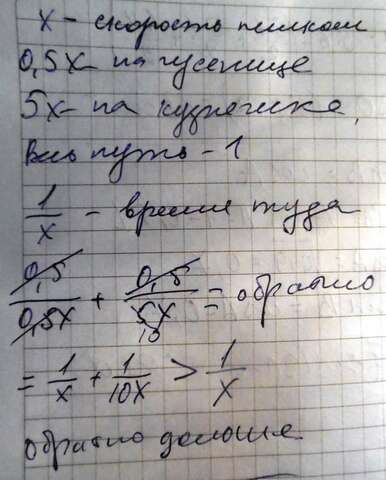 x - скорость пешком
0,5x - на гусенице
5x - на кузнечике.
Весь путь - 1
1/x - время туда
0,5/0,5x + 0,5/5x 10 = обратно
= 1/x + 1/10x > 1/x
обратно дольше